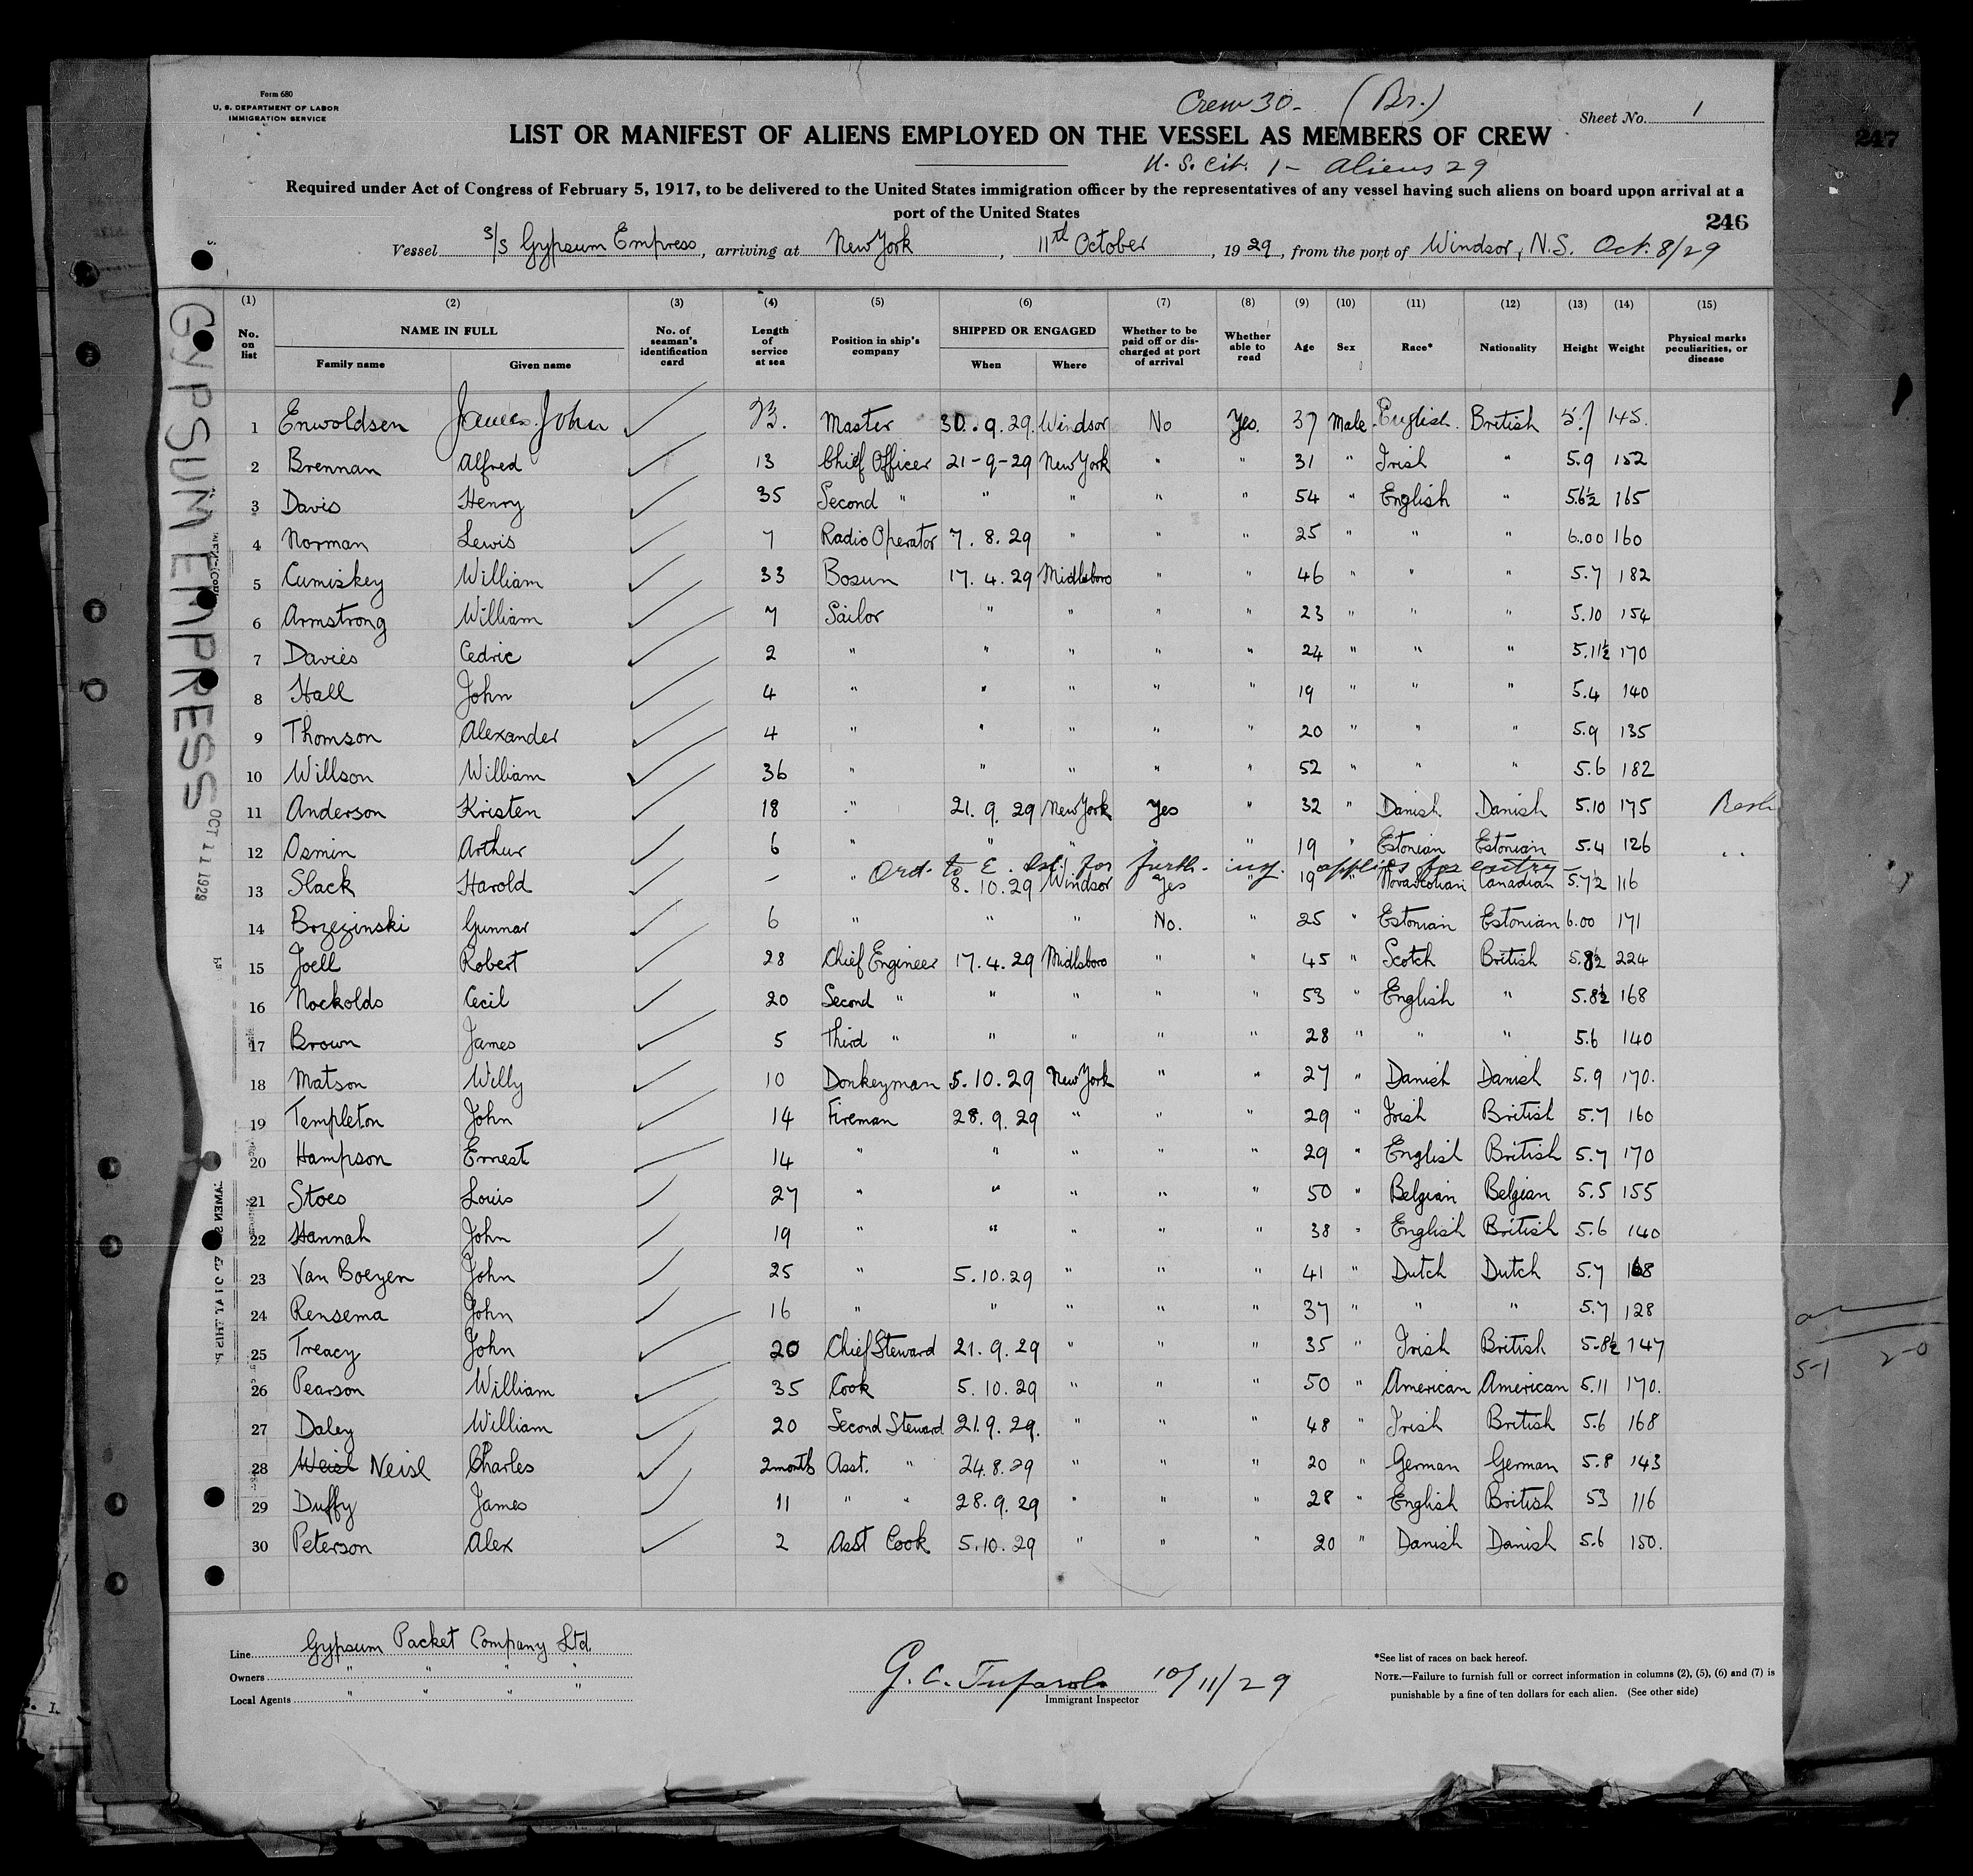 Form 680
U. S. DEPARTMENT OF LABOR
IMMIGRATION SERVICE
Crew 30 - (Br.)
Sheet No. 1
LIST OR MANIFEST OF ALIENS EMPLOYED ON THE VESSEL AS MEMBERS OF CREW
247
U. S. Cit. 1 - Aliens 29
Required under Act of Congress of February 5, 1917, to be delivered to the United States immigration officer by the representatives of any vessel having such aliens on board upon arrival at a
port of the United States
246
Vessel S/S Gypsum Empress, arriving at New York, 11th October, 1929, from the port of Windsor, N.S. Oct. 8/29
GYPSUM EMPRESS
OCT 11 1929
(1) (2) (3) (4) (5) (6) (7) (8) (9) (10) (11) (12) (13) (14) (15)
No. on list NAME IN FULL Family name Given name No. of seaman's identification card Length of service at sea Position in ship's company SHIPPED OR ENGAGED When Where Whether to be paid off or discharged at port of arrival Whether able to read Age Sex Race* Nationality Height Weight Physical marks peculiarities, or disease
1 Enwoldsen James John 23. Master 30.9.29. Windsor No Yes. 37 Male English. British 5.7 145.
2 Brennan Alfred 13 Chief Officer 21-9-29 New York " " 31 " Irish " 5.9 152
3 Davis Henry 35 Second " " " " " 54 " English " 5.6½ 165
4 Norman Lewis 7 Radio Operator 7.8.29 " " " 25 " " " 6.00 160
5 Cumiskey William 33 Bosun 17.4.29 Midlsboro " " 46 " " " 5.7 182
6 Armstrong William 7 Sailor " " " " 23 " " " 5.10 154
7 Davies Cedric 2 " " " " " 24 " " " 5.11½ 170
8 Hall John 4 " " " " " 19 " " " 5.4 140
9 Thomson Alexander 4 " " " " " 20 " " " 5.9 135
10 Willson William 36 " " " " " 52 " " " 5.6 182
11 Anderson Kristen 18 " 21.9.29 New York Yes " 32 " Danish Danish 5.10 175
12 Osmin Arthur 6 " " " " " 19 " Estonian Estonian 5.4 126 "
Ord. to E. Isl. for furth. inq. applies for entry
13 Slack Harold - " 8.10.29 Windsor Yes " 19 " Novascotian Canadian 5.7½ 116
14 Brzezinski Gunnar 6 " " " No. " 25 " Estonian Estonian 6.00 171
15 Joell Robert 28 Chief Engineer 17.4.29 Midlsboro " " 45 " Scotch British 5.8½ 224
16 Nockolds Cecil 20 Second " " " " " 53 " English " 5.8½ 168
17 Brown James 5 Third " " " " " 28 " " " 5.6 140
18 Matson Willy 10 Donkeyman 5.10.29 New York " " 27 " Danish Danish 5.9 170.
19 Templeton John 14 Fireman 28.9.29 " " " 29 " Irish British 5.7 160
20 Hampson Ernest 14 " " " " " 29 " English British 5.7 170
21 Stoes Louis 27 " " " " " 50 " Belgian Belgian 5.5 155
22 Hannah John 19 " " " " " 38 " English British 5.6 140
23 Van Boeyen John 25 " 5.10.29 " " " 41 " Dutch Dutch 5.7 168
24 Rensema John 16 " " " " " 37 " " " 5.7 128
25 Treacy John 20 Chief Steward 21.9.29 " " " 35 " Irish British 5-8½ 147
26 Pearson William 35 Cook 5.10.29 " " " 50 " American American 5.11 170.
27 Daley William 20 Second Steward 21.9.29. " " " 48 " Irish British 5.6 168
28 Weisl Neisl Charles 2 months Asst. " 24.8.29 " " " 20 " German German 5.8 143
29 Duffy James 11 " " 28.9.29 " " " 28 " English British 53 116
30 Peterson Alex 2 Asst Cook 5.10.29 " " " 20 " Danish Danish 5.6 150.
5-1 2-0
Line Gypsum Packet Company Ltd.
Owners " " " "
Local Agents " " " "
G. C. 10/11/29
Immigrant Inspector
*See list of races on back hereof.
NOTE.—Failure to furnish full or correct information in columns (2), (5), (6) and (7) is
punishable by a fine of ten dollars for each alien. (See other side)